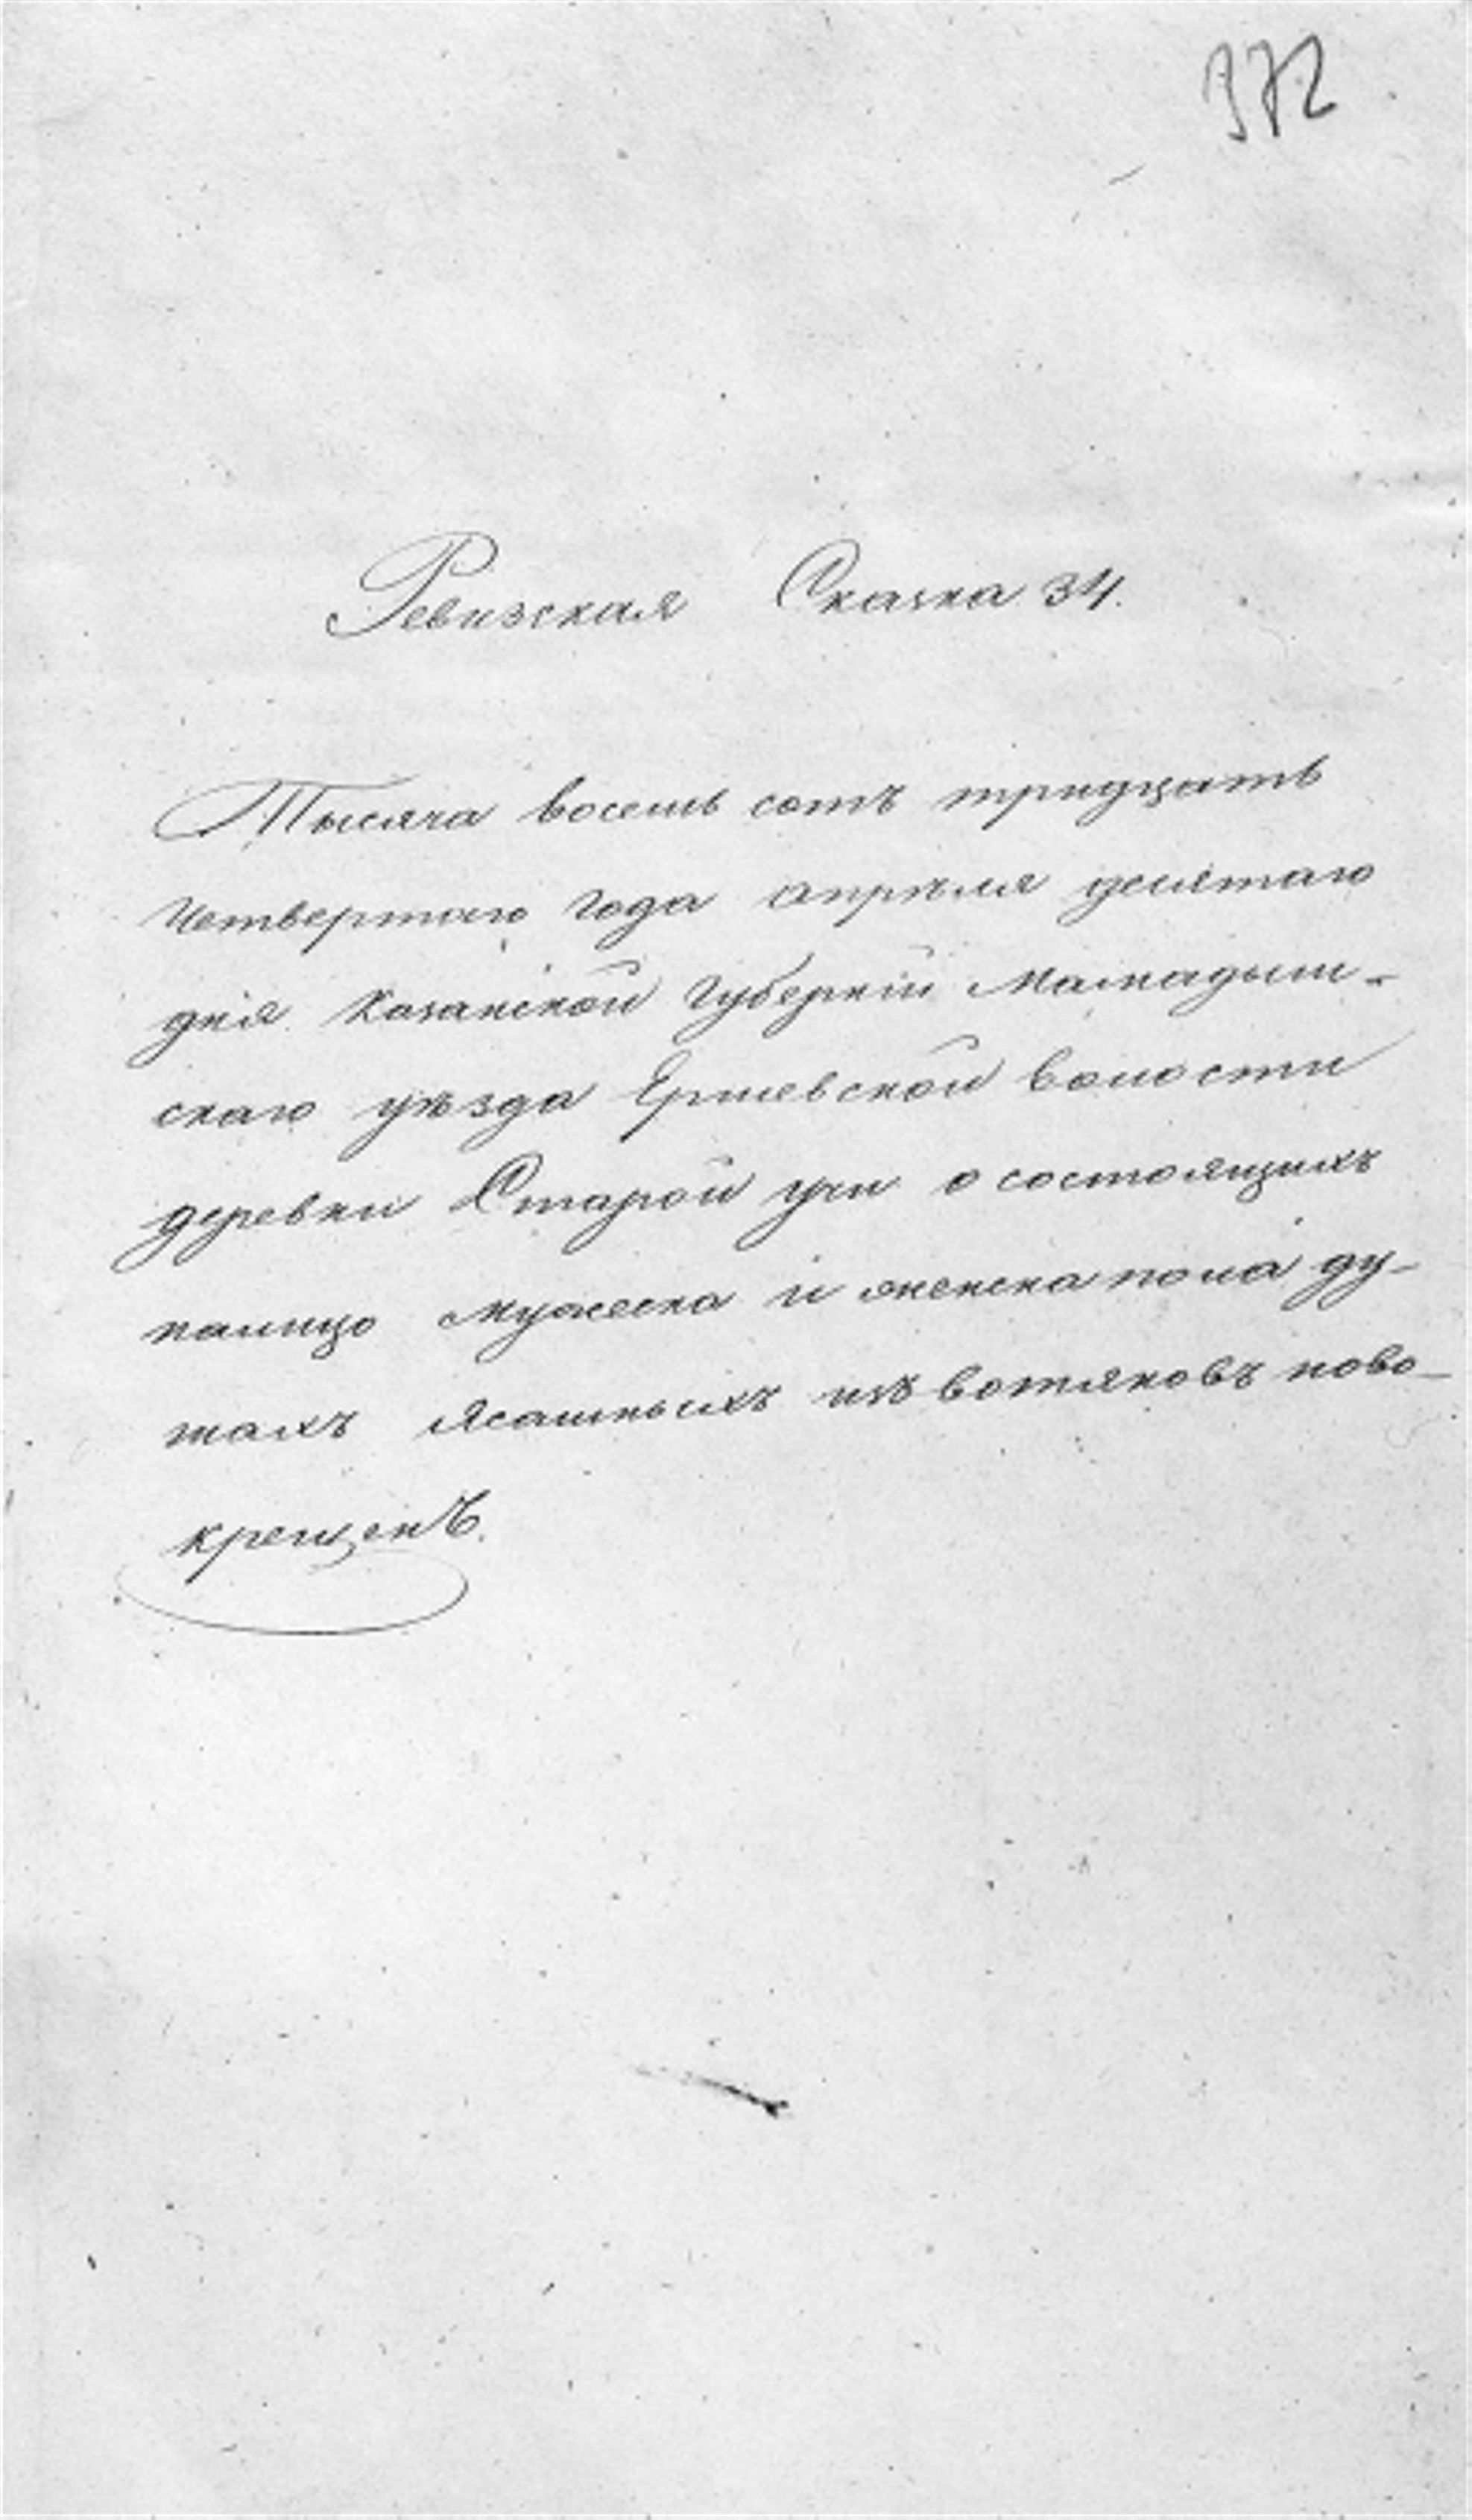 372
Ревизская Сказка 34.
Тысяча восемь сотъ тридцать
Четвертаго года апрѣля десятаго
дня Казанской губернiи Мамадыш-
скаго уѣзда Ершевской волости
деревни Старой учи о состоящихъ
налицо мужеска и женска пола ду-
шахъ Ясашныхъ изъ вотяковъ ново-
крещенъ.